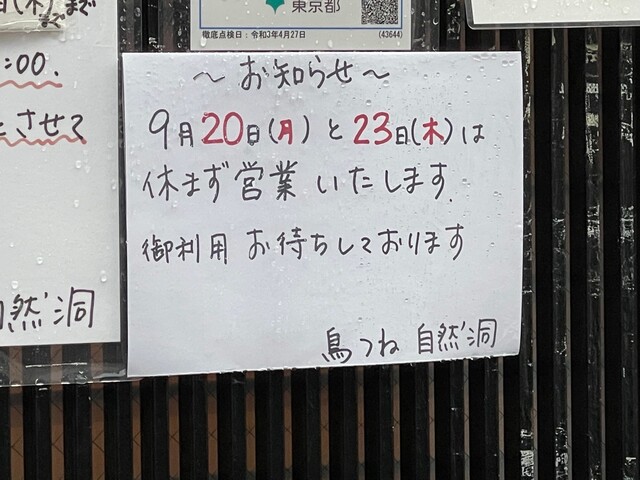 日(木)まで
まで
:00.
とさせて
自然洞
東京都
徹底点検日:令和3年4月27日 (43644)
~お知らせ~
9月20日(月)と23日(木)は
休まず営業いたします.
御利用 お待ちしております
鳥つね 自然洞